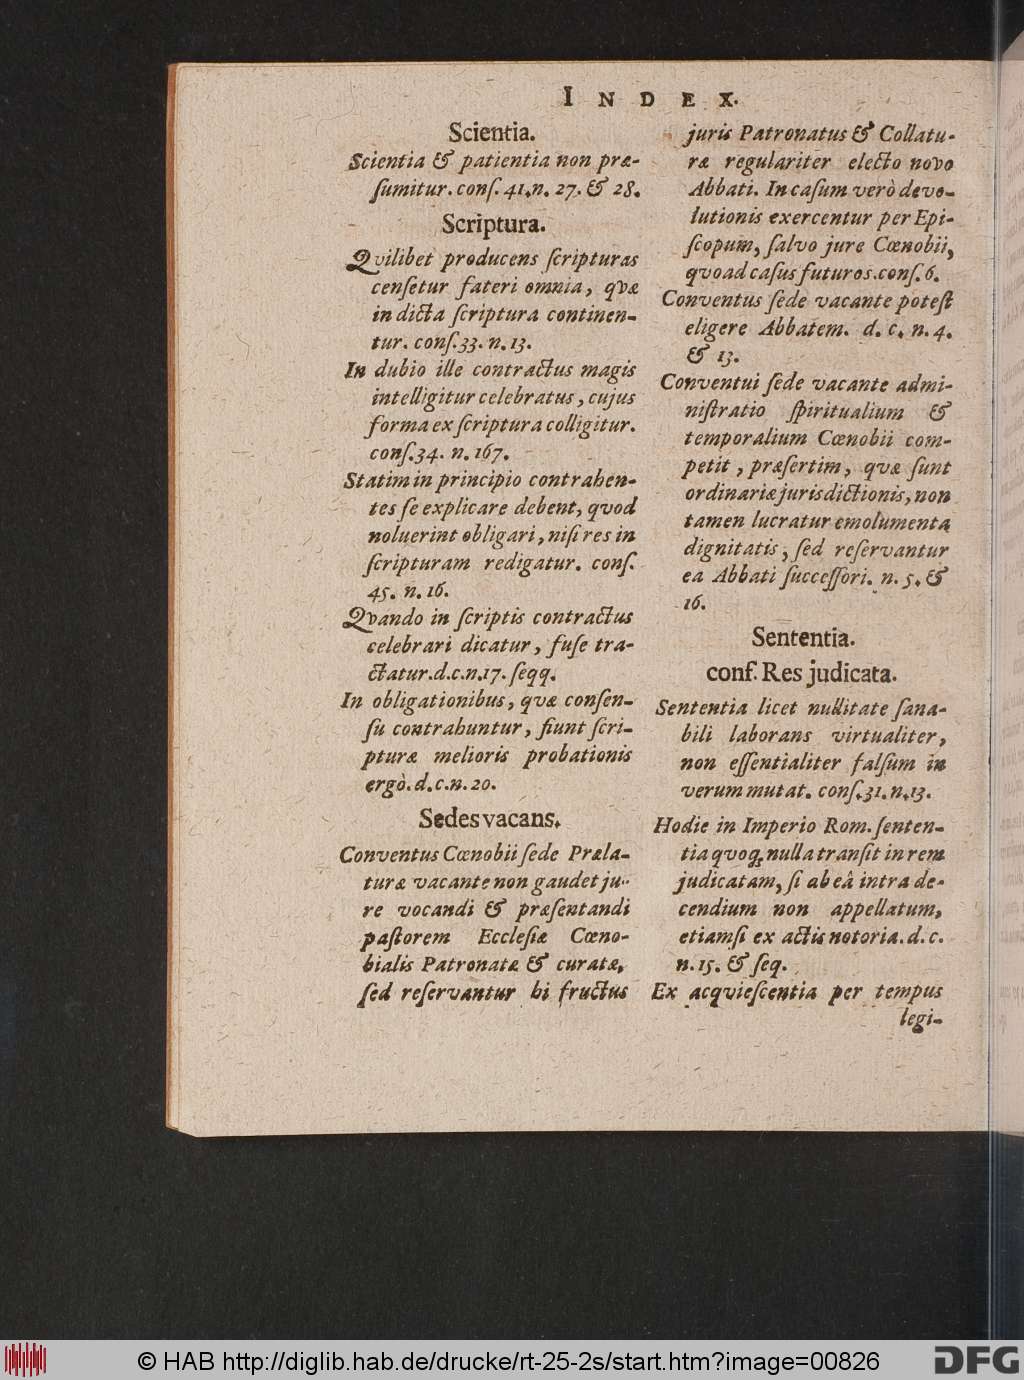 INDEX.
Scientia.
Scientia & patientia non præ-
ſumitur. conſ. 41. n. 27. & 28.
Scriptura.
Qvilibet producens ſcripturas
cenſetur fateri omnia, qvæ
in dicta ſcriptura continen-
tur. conſ. 33. n. 13.
In dubio ille contractus magis
intelligitur celebratus, cujus
forma ex ſcriptura colligitur.
conſ. 34. n. 167.
Statim in principio contrahen-
tes ſe explicare debent, qvod
noluerint obligari, niſi res in
ſcripturam redigatur. conſ.
45. n. 16.
Qvando in ſcriptis contractus
celebrari dicatur, fuſe tra-
ctatur. d. c. n. 17. ſeqq.
In obligationibus, qvæ conſen-
ſu contrahuntur, fiunt ſcri-
pturæ melioris probationis
ergò. d. c. n. 20.
Sedes vacans.
Conventus Cœnobii ſede Præla-
turæ vacante non gaudet ju-
re vocandi & præſentandi
paſtorem Eccleſiæ Cœno-
bialis Patronatæ & curatæ,
ſed reſervantur hi fructus
juris Patronatus & Collatu-
ræ regulariter electo novo
Abbati. In caſum verò devo-
lutionis exercentur per Epi-
ſcopum, ſalvo jure Cœnobii,
qvoad caſus futuros. conſ. 6.
Conventus ſede vacante poteſt
eligere Abbatem. d. c. n. 4.
& 13.
Conventui ſede vacante admi-
niſtratio ſpiritualium &
temporalium Cœnobii com-
petit, præſertim, qvæ ſunt
ordinariæ jurisdictionis, non
tamen lucratur emolumenta
dignitatis, ſed reſervantur
ea Abbati ſucceſſori. n. 5. &
16.
Sententia.
conf. Res judicata.
Sententia licet nullitate ſana-
bili laborans virtualiter,
non eſſentialiter falſum in
verum mutat. conſ. 31. n. 13.
Hodie in Imperio Rom. ſenten-
tia qvoq; nulla tranſit in rem
judicatam, ſi ab eâ intra de-
cendium non appellatum,
etiamſi ex actis notoria. d. c.
n. 15. & ſeq.
Ex acqvieſcentia per tempus
legi-
© HAB http://diglib.hab.de/drucke/rt-25-2s/start.htm?image=00826
DFG